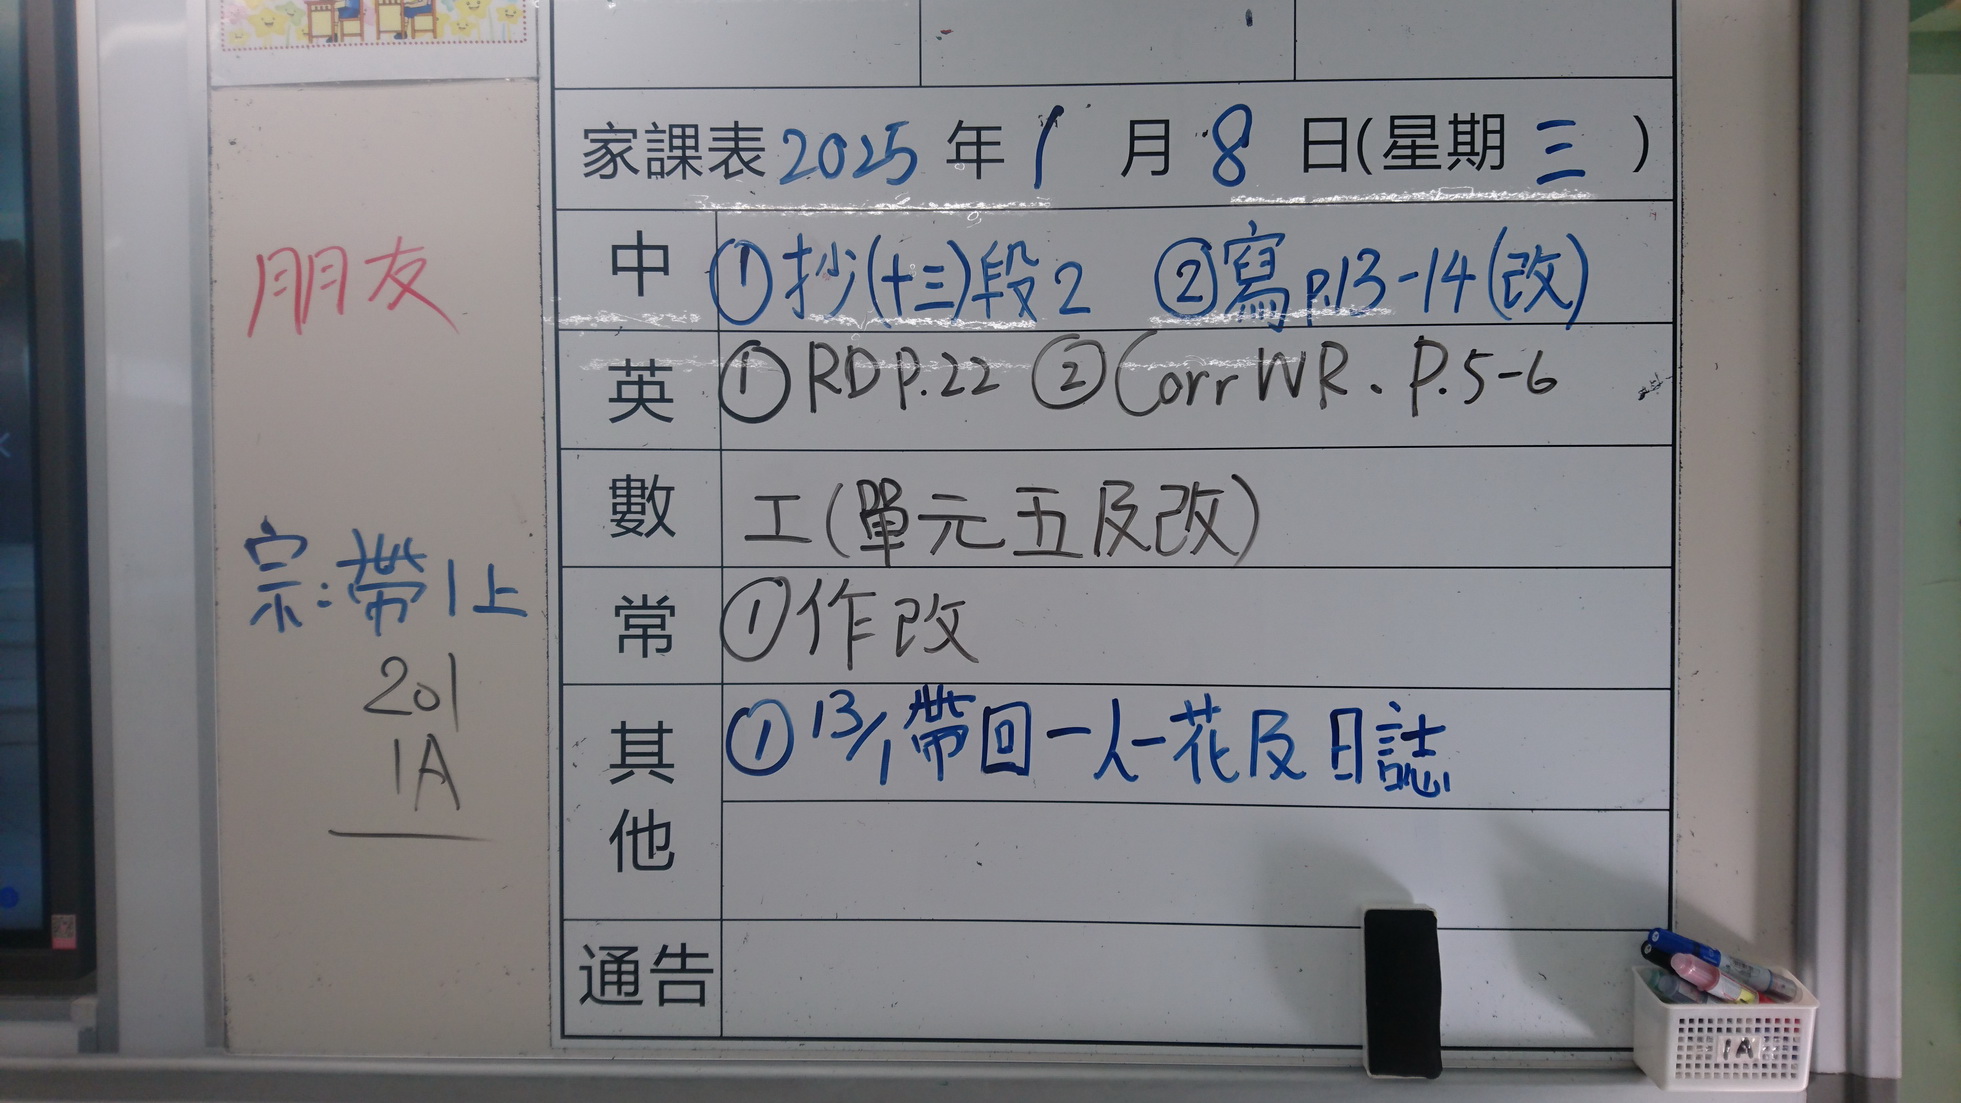 家課表 2025 年 1 月 8 日(星期 三 )
中 ①抄(十三)段2 ②寫p.13-14(改)
英 ①RD P.22 ②Corr WR. P.5-6
數 工(單元五及改)
常 ①作改
其他 ①13/1帶回一人一花及日誌
通告
朋友
宗:帶1上
201
1A
1A